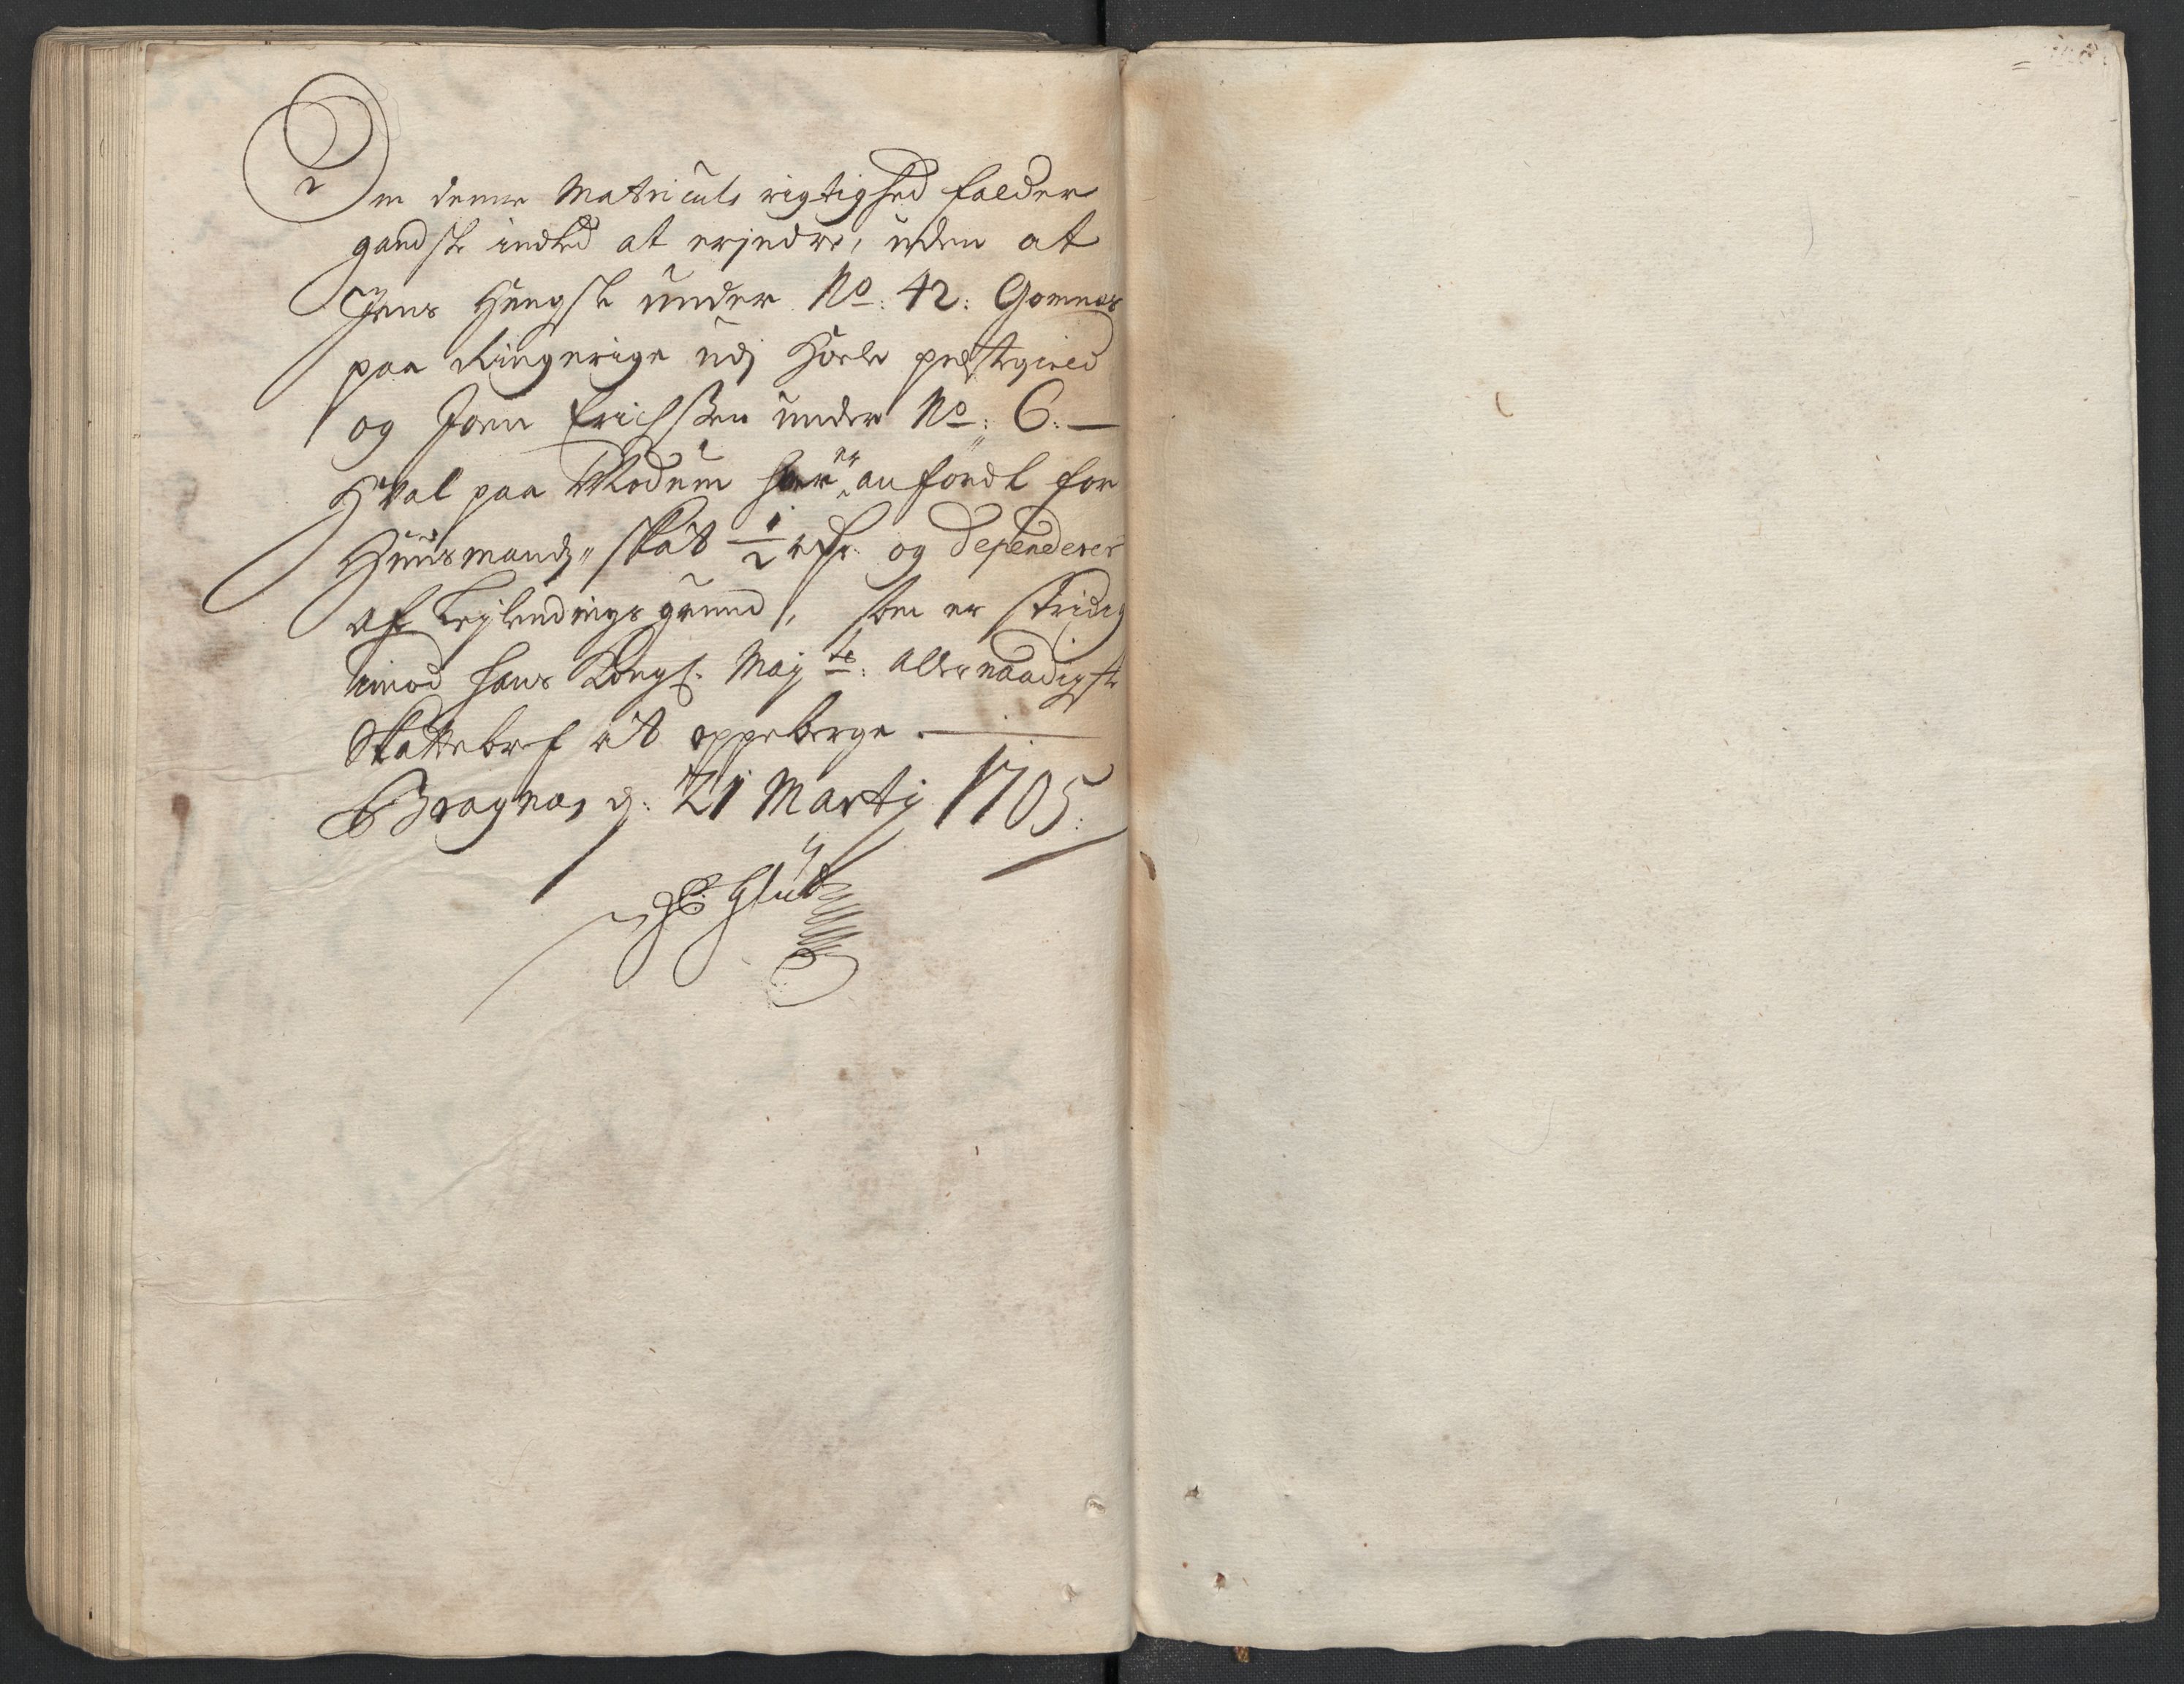 Om denne Matriculs rigtighed falder
gandske indted at erjndre, uden at
Jens Hengsle under No: 42: Gomnes
paa Ringerige udj Hoele prestegield
og Joen Erichsßen under No: 6: —
Hval paa Modum her er anfördt for
Huusmands skat ½ rdr. og dependerer
af Leylendings grund, som er stridig
imod hans Kongl. Mayts: allernaadigste
Skattebref at oppeberge. —
Bragnæs d: 21 Martij 1705:
Glud